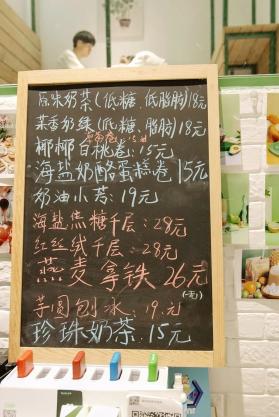 原味奶茶(低糖、低脂肪)18元
茶香奶绿(低糖、脂肪)18元
椰椰白桃卷:15元
海盐奶酪蛋糕卷 15元
奶油小芳:19元
海盐焦糖千层:28元
红丝绒千层:28元
燕麦拿铁 26元
芋圆刨冰:19.元
珍珠奶茶.15元